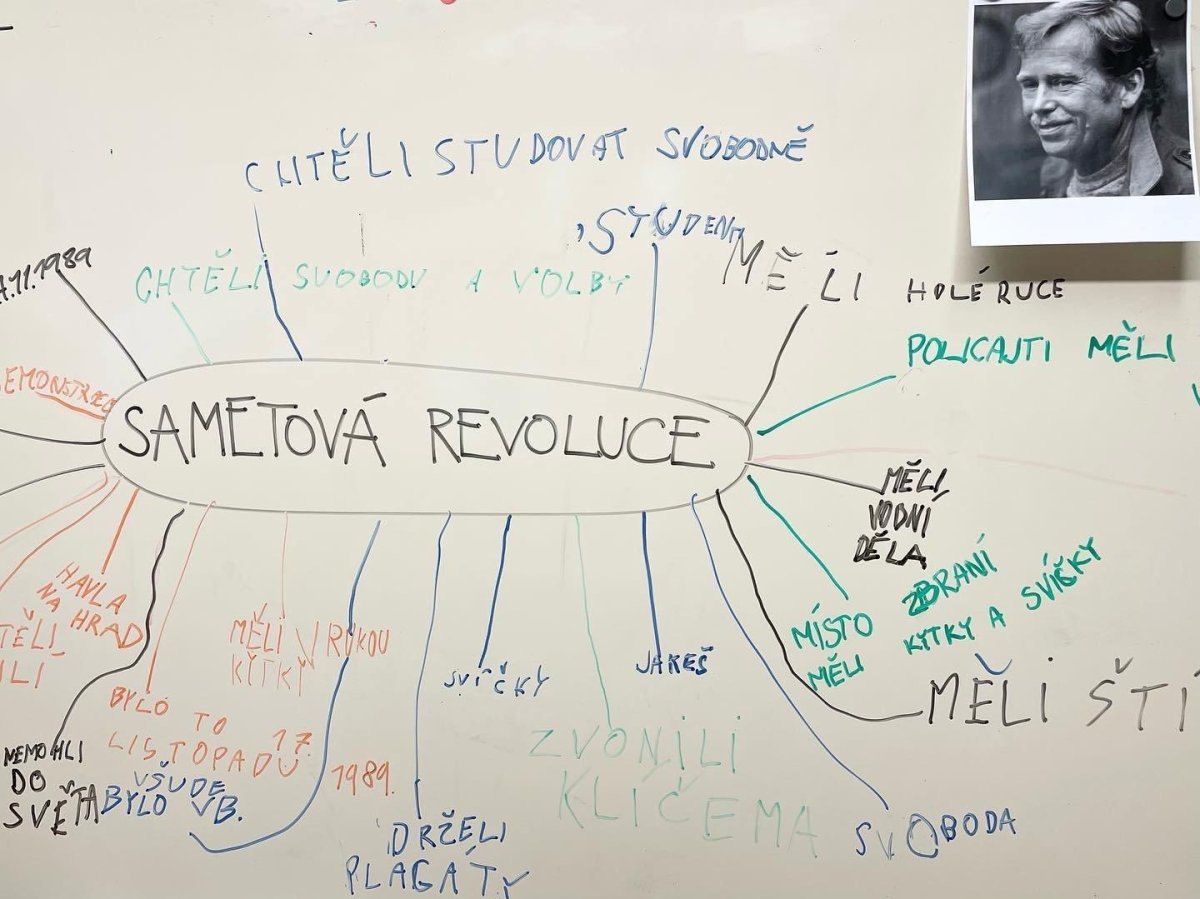 CHTĚLI STUDOVAT SVOBODNĚ
STUDENTI
MĚLI HOLÉ RUCE
.11.1989
CHTĚLI SVOBODU A VOLBY
POLICAJTI MĚLI
EMONSTRACE
SAMETOVÁ REVOLUCE
MĚLI
VODNÍ
DĚLA
HAVLA
NA HRAD
TĚLI
MĚLI V RUKOU
KYTKY
SVÍČKY
JAKEŠ
MÍSTO ZBRANÍ
MĚLI KYTKY A SVÍŠKY
MĚLI ŠTÍ
BYLO TO
LISTOPADU 17.
1989.
NEMOHLI
DO
SVĚTA
VŠUDE
BYLO VB.
ZVONILI
KLÍČEMA
DRŽELI
PLAGÁTY
SVOBODA